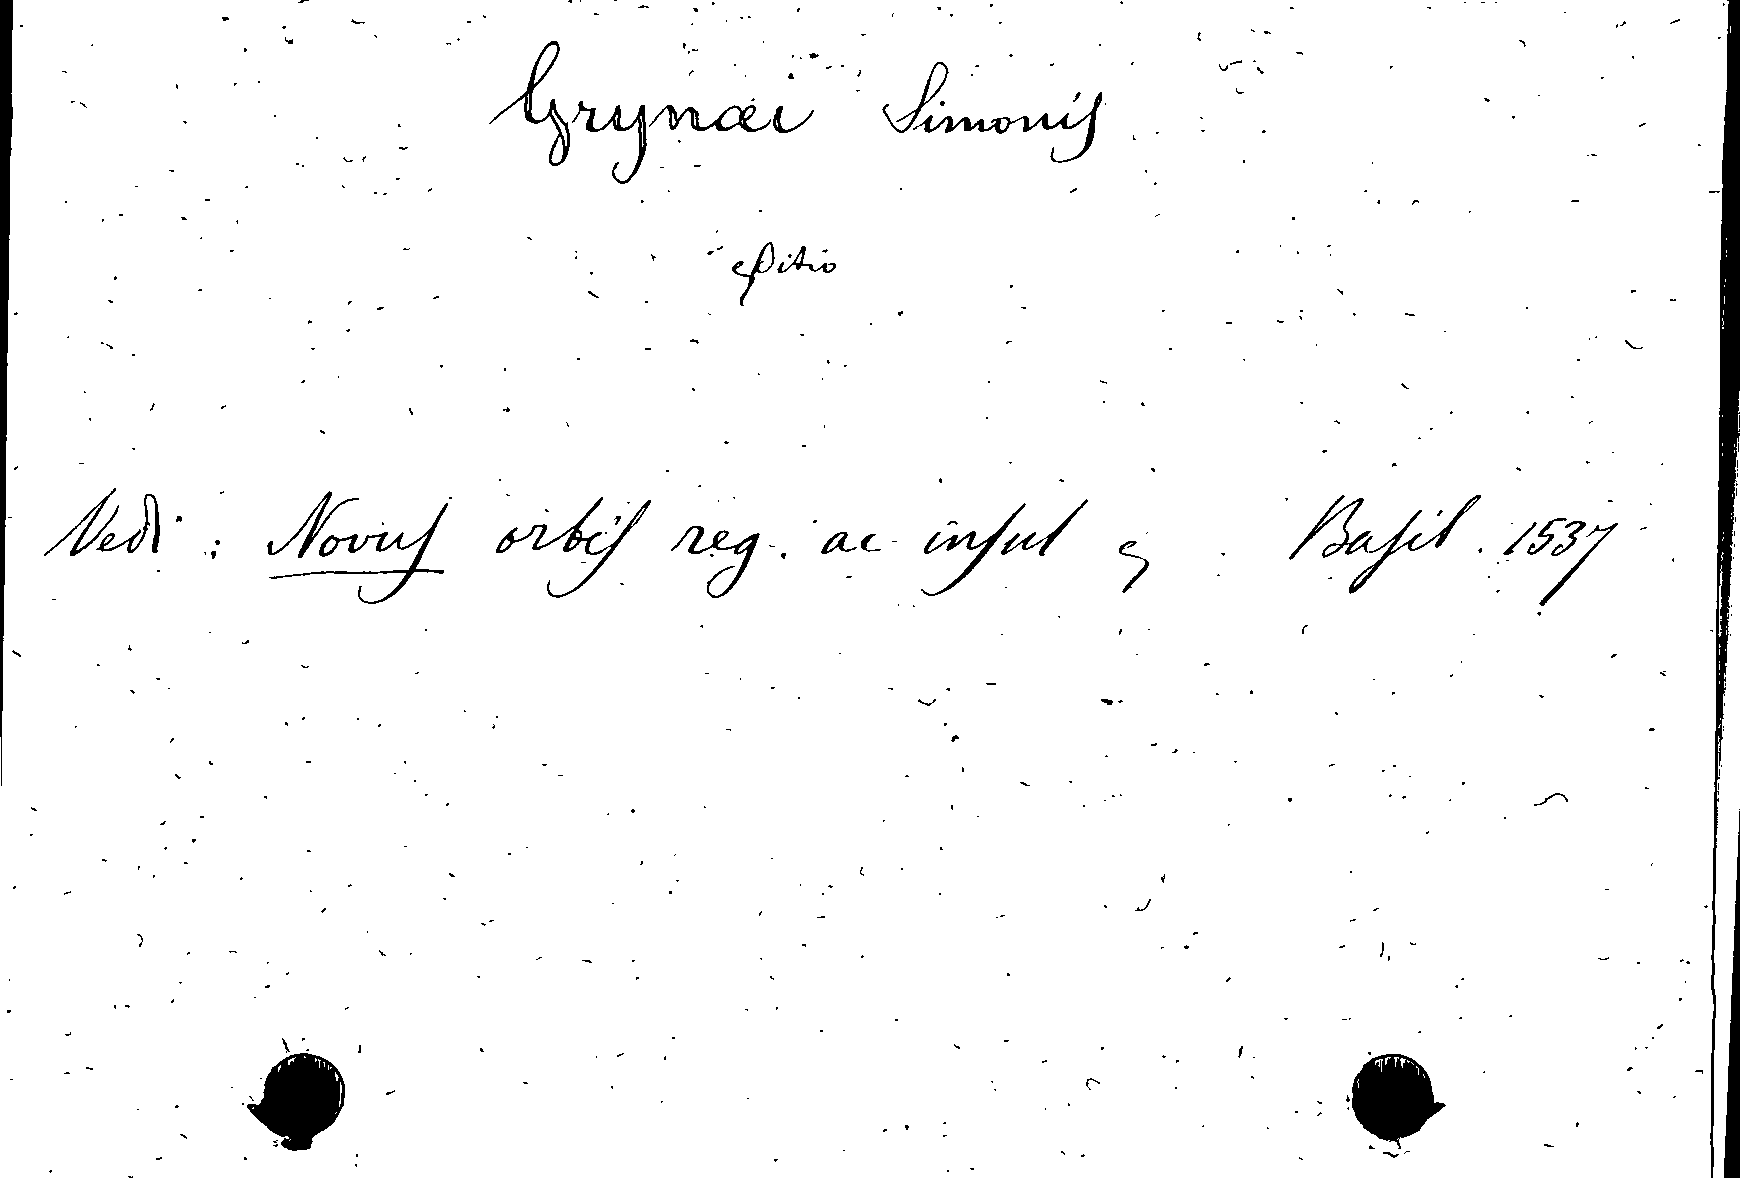 Grynæi Simonis
editio
Vedi: Novus orbis reg. ac insul Basil. 1537